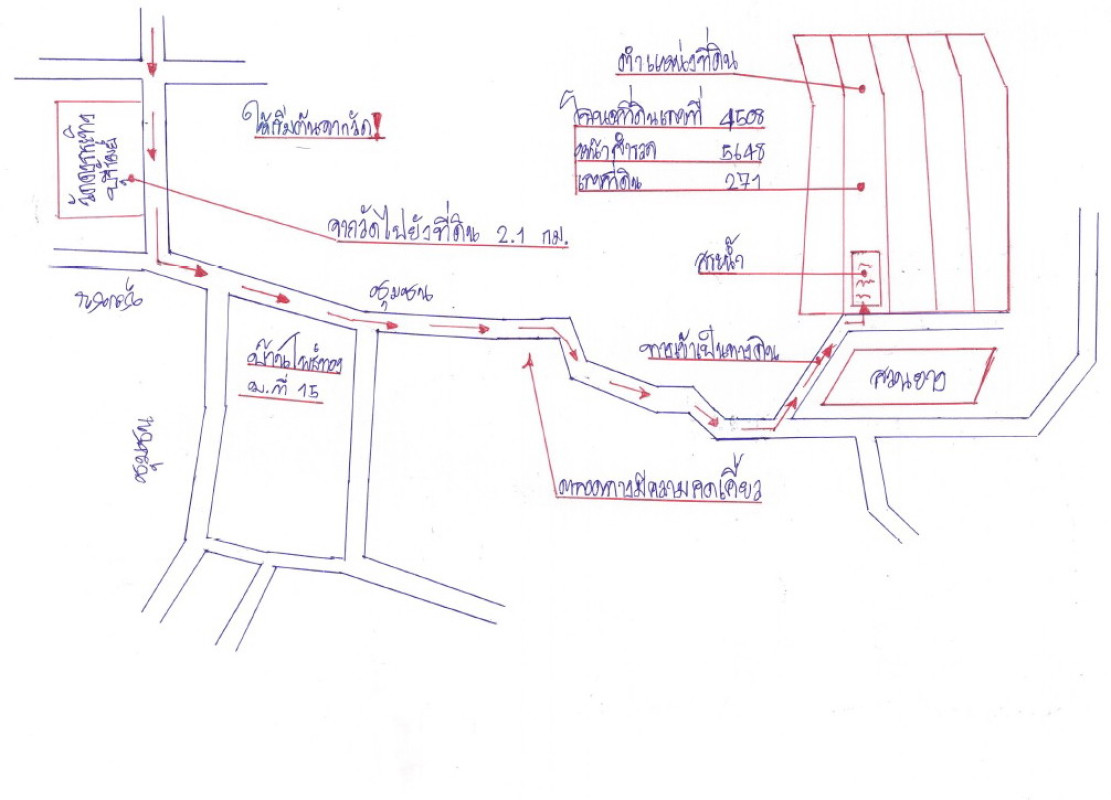 ตำแหน่งที่ดิน
ให้เริ่มต้นจากวัด!
โฉนดที่ดินเลขที่ 4508
หน้าสำรวจ 5648
เลขที่ดิน 271
จากวัดไปยังที่ดิน 2.1 กม.
สระน้ำ
ชุมชน
ทางเข้าเป็นทางดิน
บ้านโพธิ์ทอง
ม.ที่ 15
สวนยาง
ชุมชน
ตลอดทางมีความคดเคี้ยว